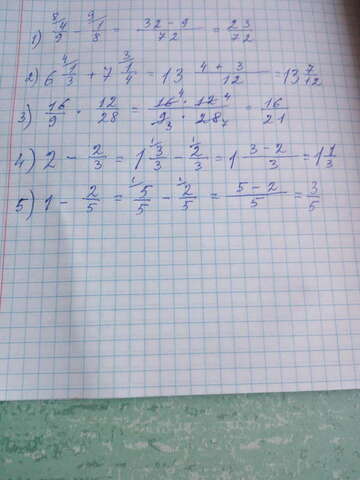 1) 8/ 4/9 - 9/ 1/8 = 32 - 9 / 72 = 23/72
2) 6 4/ 1/3 + 7 3/ 1/4 = 13 4 + 3 / 12 = 13 7/12
3) 16/9 · 12/28 = 16 4 · 12 4 / 9 3 · 28 7 = 16/21
4) 2 - 2/3 = 1 1/ 3/3 - 1/ 2/3 = 1 3 - 2 / 3 = 1 1/3
5) 1 - 2/5 = 1/ 5/5 - 1/ 2/5 = 5 - 2 / 5 = 3/5